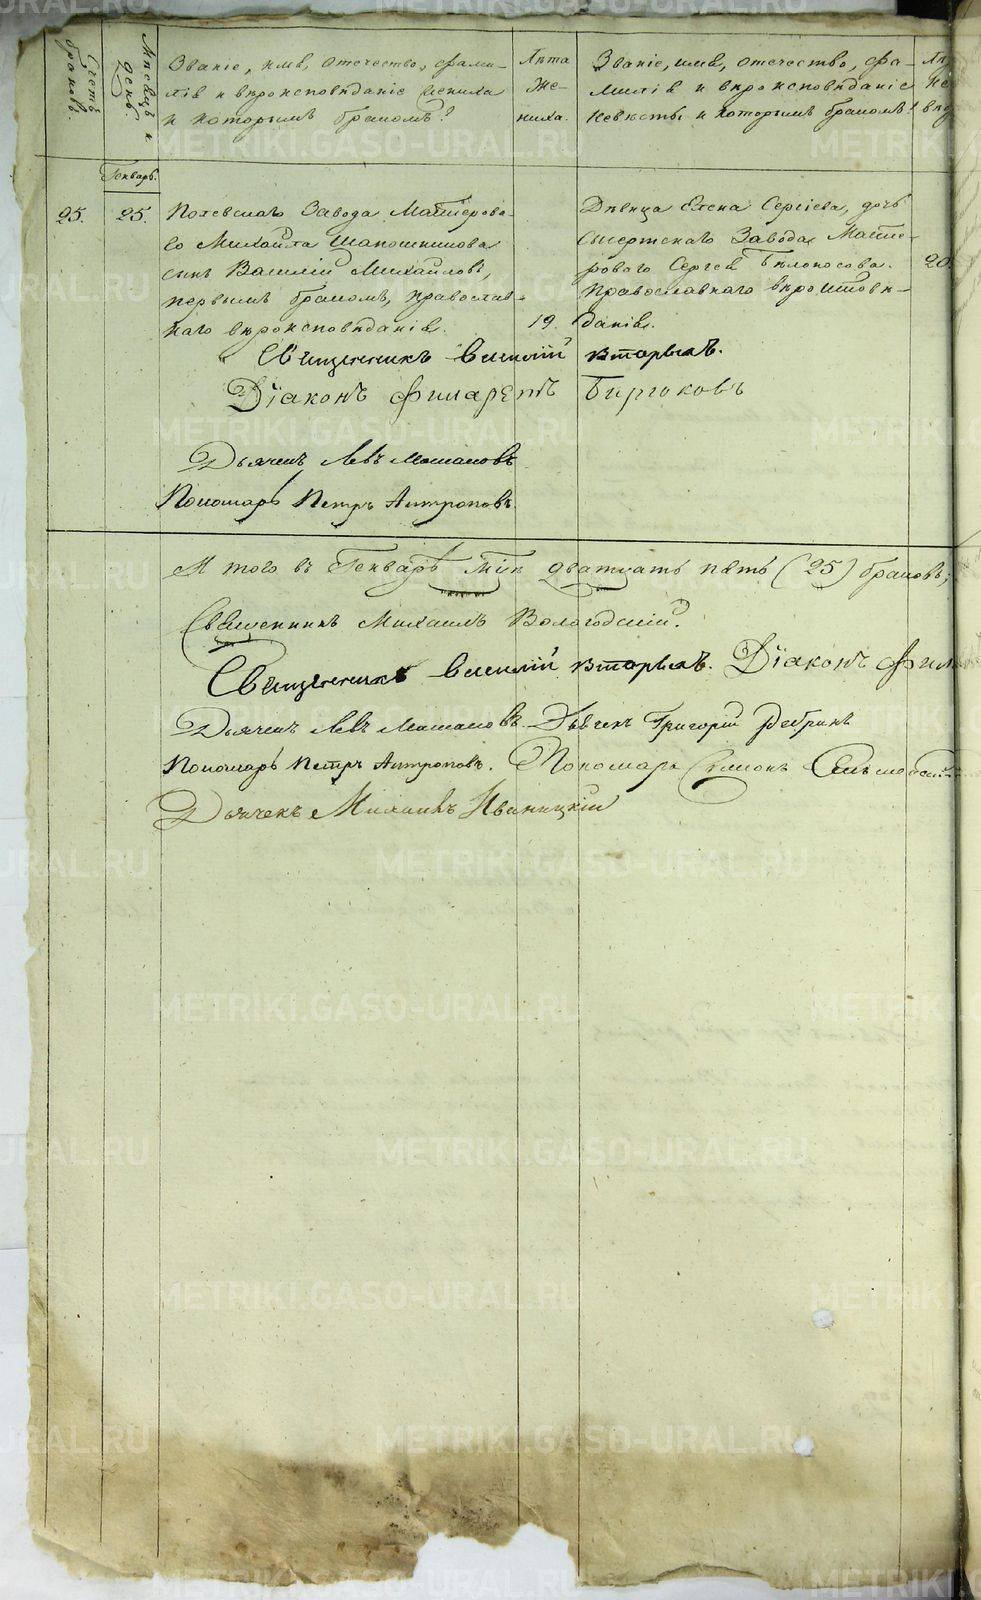 Счетъ браковъ.
Мѣсяцъ и день.
Званіе, имя, отечество, фами-
лія и вѣроисповѣданіе жениха
и которымъ бракомъ?
Лѣта
Же-
ниха.
Званіе, имя, отечество, фа-
милія и вѣроисповѣданіе
невѣсты и которымъ бракомъ?
Генварь.
25.
25.
Полевскаго Завода Мастерова-
го Михайла Шапошникова
сынъ Василій Михайловъ,
первымъ бракомъ, православ-
наго вѣроисповѣданія.
19.
Дѣвица Елена Сергіева, дочь
Сысертскаго Завода Масте-
роваго Сергея Бѣлоносова.
Православнаго вѣроисповѣ-
данія.
20.
Священникъ Василій Вторыхъ.
Діаконъ Филаретъ Бирюковъ
Дьячекъ Левъ
Пономарь Петръ Антроповъ.
И того въ Генварѣ дватцать пять (25) браковъ;
Священникъ Михаилъ Вологодскій.
Священникъ Василій Вторыхъ. Діаконъ
Дьячекъ Левъ Дьячекъ Григорій
Пономарь Петръ Антроповъ. Пономарь Симеонъ
Дьячекъ Михаилъ Иваницкій
METRIKI.GASO-URAL.RU